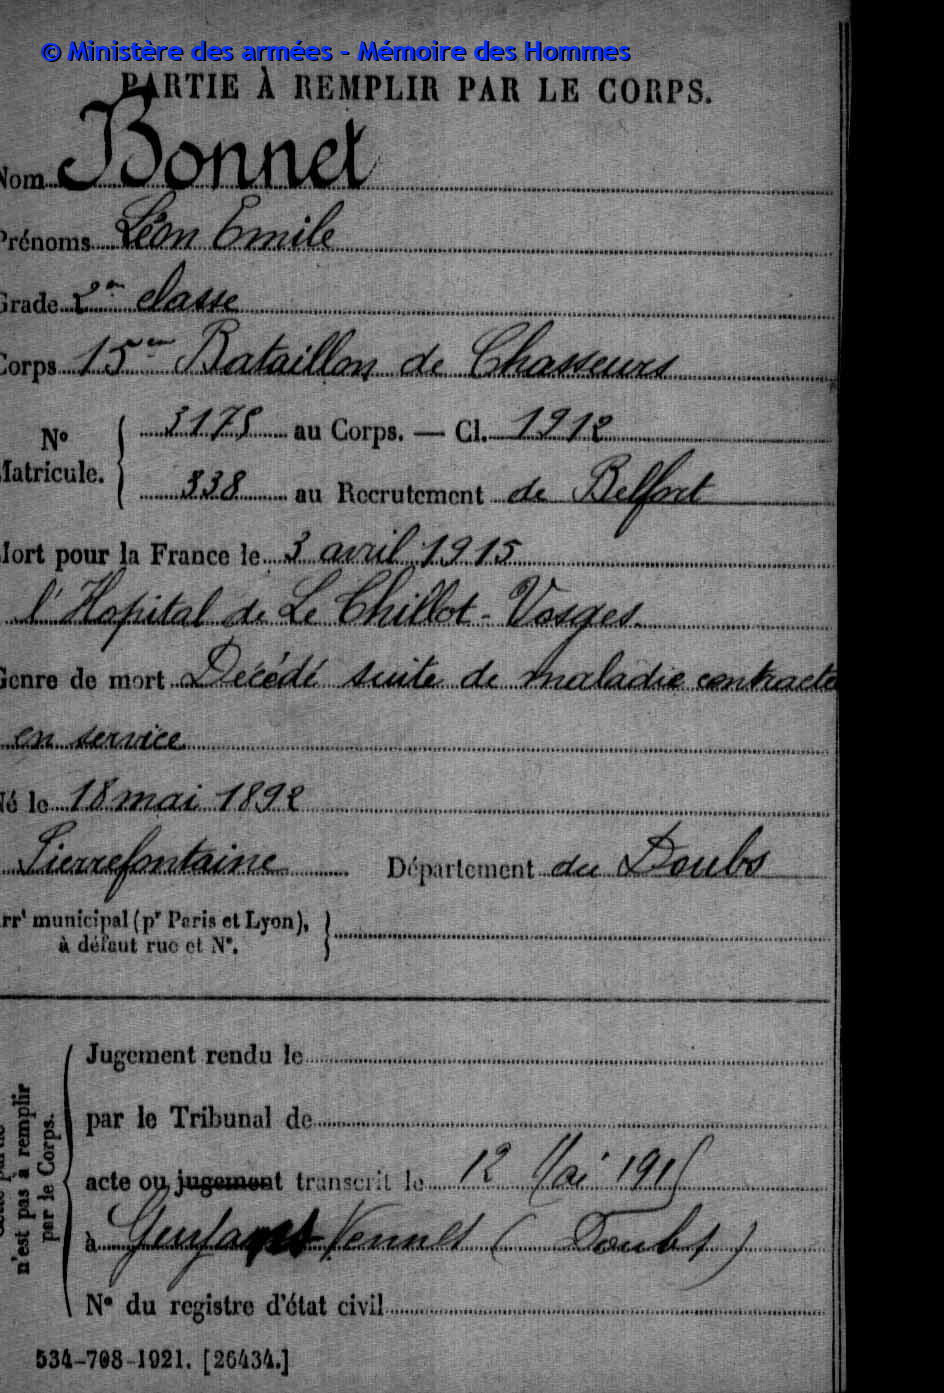 © Ministère des armées - Mémoire des Hommes
PARTIE À REMPLIR PAR LE CORPS.
Nom Bonnet
Prénoms Léon Emile
Grade 2e classe
Corps 15e Bataillon de Chasseurs
No
Matricule.
3175 au Corps. — Cl. 1912
338 au Recrutement de Belfort
Mort pour la France le 3 avril 1915
l'Hopital de Le Chillot - Vosges.
Genre de mort Décédé suite de maladie contractée
en service
Né le 18 mai 1892
Pierrefontaine Département du Doubs
arrt municipal (pr Paris et Lyon),
à défaut rue et No.
Cette partie
n'est pas à remplir
par le Corps.
Jugement rendu le
par le Tribunal de
acte ou jugement transcrit le 12 Mai 1915
à Vennes (Doubs)
No du registre d'état civil
534-708-1921. [26434.]